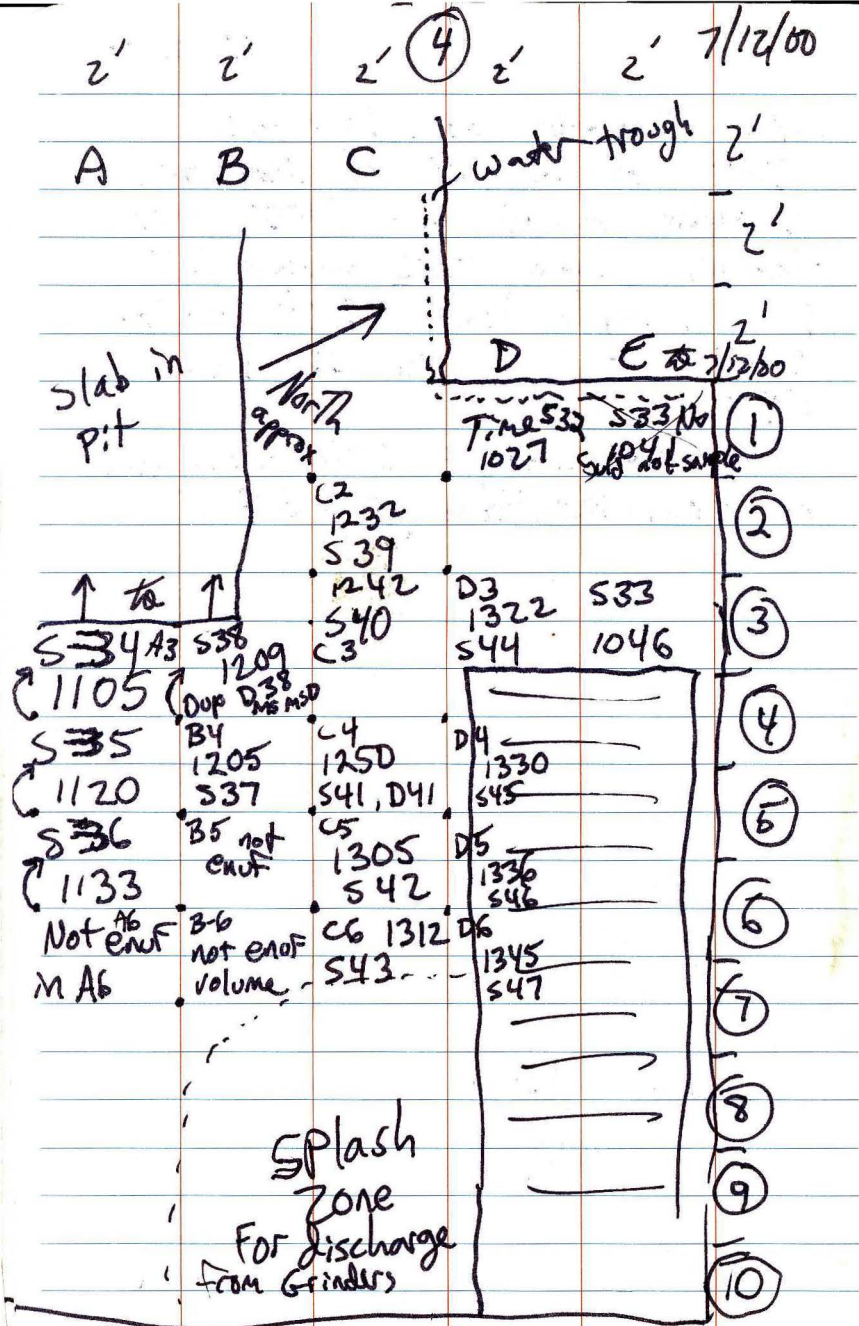 4
2' 2' 2' 2' 2' 7/12/00
water trough
A B C
2'
2'
2'
D E 7/12/00
Slab in
pit
North
approx
Time S32 S33 No
1027 1041
not sample
1
C2
1232
S39
2
1242
S40
C3
D3
1322
S44
S33
1046
3
S34 A3
1105
S38
1209
Dup D38
MS MSD
4
S35
1120
B4
1205
S37
C4
1250
S41, D41
D4
1330
S45
5
S36
1133
B5 not
enuf
C5
1305
S42
D5
1336
S46
6
Not enuf
A6
in A6
B-6
not enof
volume
C6 1312
S43
D6
1345
S47
7
8
9
10
Splash
Zone
For discharge
from Grinders